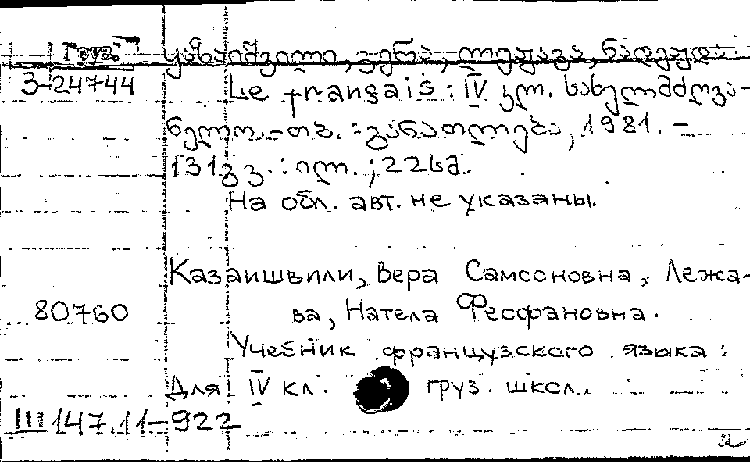 Груз.
3-24744
ყაზაიშვილი, ვერა, ლეჟავა, ნატელა
Le français : IV კლ. სახელმძღვა-
ნელო. - თბ. : განათლება, 1981. -
131 გვ. : ილ. ; 22 სმ.
На обл. авт. не указаны.
Казаишвили, Вера Самсоновна, Лежа-
80760
ва, Натела Феофановна.
Учебник французского языка:
Для IV кл. груз. школ.
III 147.11-922